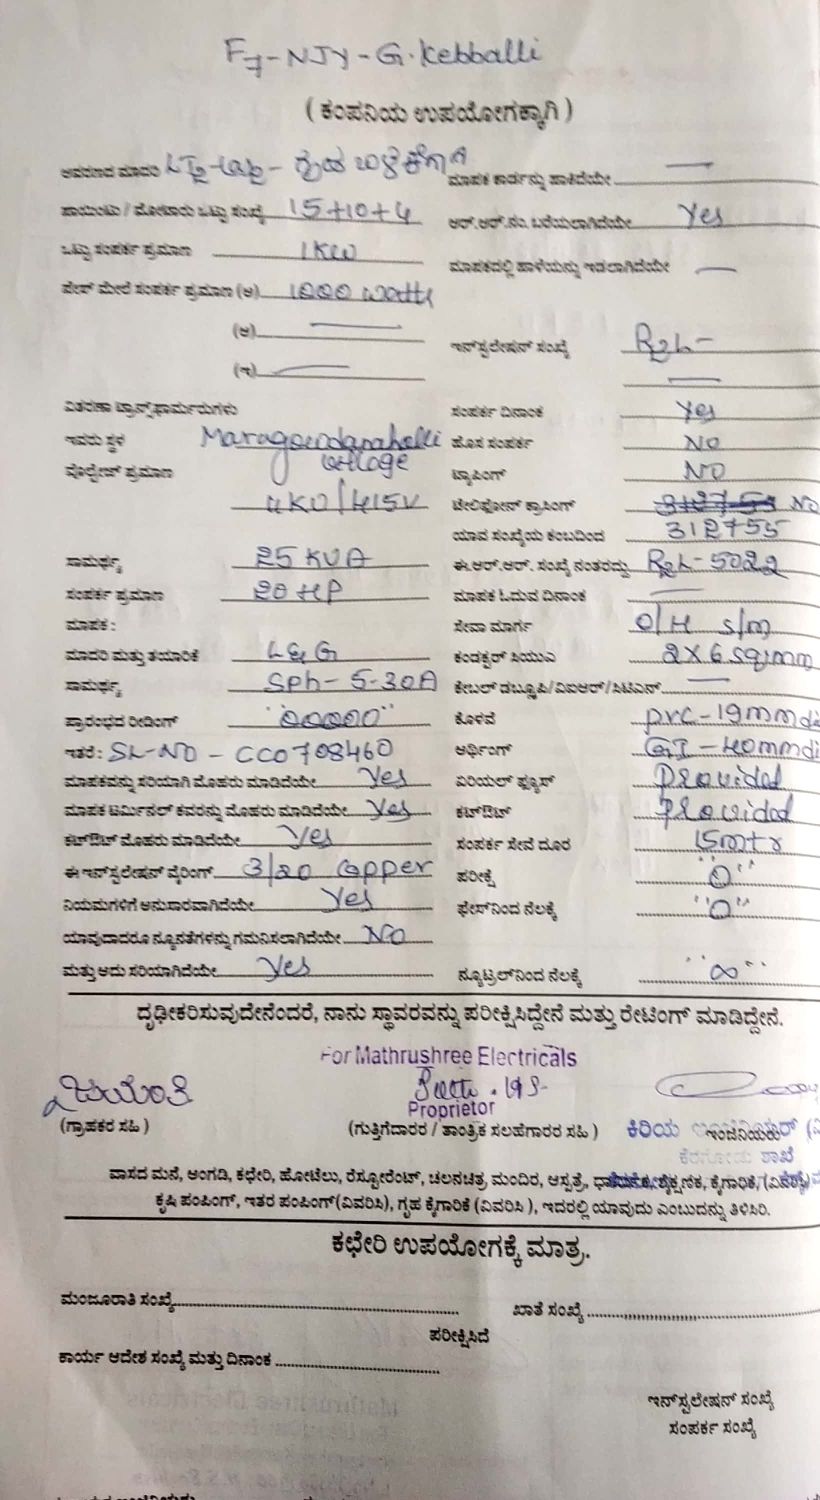 F7-NJY-G.Kebballi
( ಕಂಪನಿಯ ಉಪಯೋಗಕ್ಕಾಗಿ )
ಆವರಣದ ಮಾದರಿ ಗೃಹ ಬಳಕೆಗಾಗಿ
ಮಾಪಕ ಕಾರ್ಡನ್ನು ಹಾಕಿದೆಯೇ —
ಪಾಯಿಂಟು / ಮೋಟಾರು ಒಟ್ಟು ಸಂಖ್ಯೆ 15+10+4
ಆರ್.ಆರ್.ನಂ. ಬರೆಯಲಾಗಿದೆಯೇ Yes
ಒಟ್ಟು ಸಂಪರ್ಕ ಪ್ರಮಾಣ 1KW
ಮಾಪಕದಲ್ಲಿ ಹಾಳೆಯನ್ನು ಇಡಲಾಗಿದೆಯೇ —
ಪೇಸ್ ಮೇಲೆ ಸಂಪರ್ಕ ಪ್ರಮಾಣ (ಅ) 1000 watts
(ಆ) —
ಇನ್‌ಸ್ಟಲೇಷನ್ ಸಂಖ್ಯೆ R2L-
(ಇ) —
—
ವಿತರಣಾ ಟ್ರಾನ್ಸ್‌ಫಾರ್ಮರುಗಳು
ಸಂಪರ್ಕ ದಿನಾಂಕ Yes
ಇವರು ಸ್ಥಳ Maragowdanahalli
village
ಹೊಸ ಸಂಪರ್ಕ NO
ವೊಲ್ಟೇಜ್ ಪ್ರಮಾಣ
ಟ್ಯಾಪಿಂಗ್ NO
11KV/415V
ಟೇಲಿಫೋನ್ ಕ್ರಾಸಿಂಗ್ NO
ಯಾವ ಸಂಖ್ಯೆಯ ಕಂಬದಿಂದ 312755
ಸಾಮರ್ಥ್ಯ 25 KVA
ಈ.ಆರ್.ಆರ್. ಸಂಖ್ಯೆ ನಂತರದ್ದು R2L-5022
ಸಂಪರ್ಕ ಪ್ರಮಾಣ 20 HP
ಮಾಪಕ ಓದುವ ದಿನಾಂಕ —
ಮಾಪಕ :
ಸೇವಾ ಮಾರ್ಗ O/H s/m
ಮಾದರಿ ಮತ್ತು ತಯಾರಿಕೆ L&G
ಕಂಡಕ್ಟರ್ ಸಿಯುಎ 2X6 sqmm
ಸಾಮರ್ಥ್ಯ Sph-5-30A
ಕೇಬಲ್ ಡಬ್ಲ್ಯೂಪಿ/ವಿಐಆರ್/ಸಿಟಿಎನ್ —
ಪ್ರಾರಂಭದ ರೀಡಿಂಗ್ "00000"
ಕೊಳವೆ PVC-19mmdi
ಇತರೆ : SL-NO - CC0708460
ಅರ್ಥಿಂಗ್ GI-40mmdi
ಮಾಪಕವನ್ನು ಸರಿಯಾಗಿ ಮೊಹರು ಮಾಡಿದೆಯೇ Yes
ಏರಿಯಲ್ ಫ್ಯೂಸ್ Provided
ಮಾಪಕ ಟರ್ಮಿನಲ್ ಕವರನ್ನು ಮೊಹರು ಮಾಡಿದೆಯೇ Yes
ಕಟ್‌ಔಟ್ Provided
ಕಟ್‌ಔಟ್ ಮೊಹರು ಮಾಡಿದೆಯೇ Yes
ಸಂಪರ್ಕ ಸೇವೆ ದೂರ 15mtr
ಈ ಇನ್‌ಸ್ಟಲೇಷನ್ ವೈರಿಂಗ್ 3/20 Copper
ಪರೀಕ್ಷೆ "0"
ನಿಯಮಗಳಿಗೆ ಅನುಸಾರವಾಗಿದೆಯೇ Yes
ಫೇಸ್‌ನಿಂದ ನೆಲಕ್ಕೆ "0"
ಯಾವುದಾದರೂ ನ್ಯೂನತೆಗಳನ್ನು ಗಮನಿಸಲಾಗಿದೆಯೇ No
ಮತ್ತು ಅದು ಸರಿಯಾಗಿದೆಯೇ Yes
ನ್ಯೂಟ್ರಲ್‌ನಿಂದ ನೆಲಕ್ಕೆ "∞"
ದೃಢೀಕರಿಸುವುದೇನೆಂದರೆ, ನಾನು ಸ್ಥಾವರವನ್ನು ಪರೀಕ್ಷಿಸಿದ್ದೇನೆ ಮತ್ತು ರೇಟಿಂಗ್ ಮಾಡಿದ್ದೇನೆ.
For Mathrushree Electricals
ಜಯಂತಿ
Proprietor
(ಗ್ರಾಹಕರ ಸಹಿ )
(ಗುತ್ತಿಗೆದಾರರ / ತಾಂತ್ರಿಕ ಸಲಹೆಗಾರರ ಸಹಿ )
ಕಿರಿಯ ಇಂಜಿನಿಯರ್ (ವಿ
ಕೆರಗೋಡು ಶಾಖೆ
ವಾಸದ ಮನೆ, ಅಂಗಡಿ, ಕಛೇರಿ, ಹೋಟೆಲು, ರೆಸ್ಟೋರೆಂಟ್, ಚಲನಚಿತ್ರ ಮಂದಿರ, ಆಸ್ಪತ್ರೆ, ಶೈಕ್ಷಣಿಕ, ಕೈಗಾರಿಕೆ,
ಕೃಷಿ ಪಂಪಿಂಗ್, ಇತರ ಪಂಪಿಂಗ್(ವಿವರಿಸಿ), ಗೃಹ ಕೈಗಾರಿಕೆ (ವಿವರಿಸಿ ), ಇದರಲ್ಲಿ ಯಾವುದು ಎಂಬುದನ್ನು ತಿಳಿಸಿರಿ.
ಕಛೇರಿ ಉಪಯೋಗಕ್ಕೆ ಮಾತ್ರ.
ಮಂಜೂರಾತಿ ಸಂಖ್ಯೆ
ಖಾತೆ ಸಂಖ್ಯೆ
ಪರೀಕ್ಷಿಸಿದೆ
ಕಾರ್ಯ ಆದೇಶ ಸಂಖ್ಯೆ ಮತ್ತು ದಿನಾಂಕ
ಇನ್‌ಸ್ಟಲೇಷನ್ ಸಂಖ್ಯೆ
ಸಂಪರ್ಕ ಸಂಖ್ಯೆ